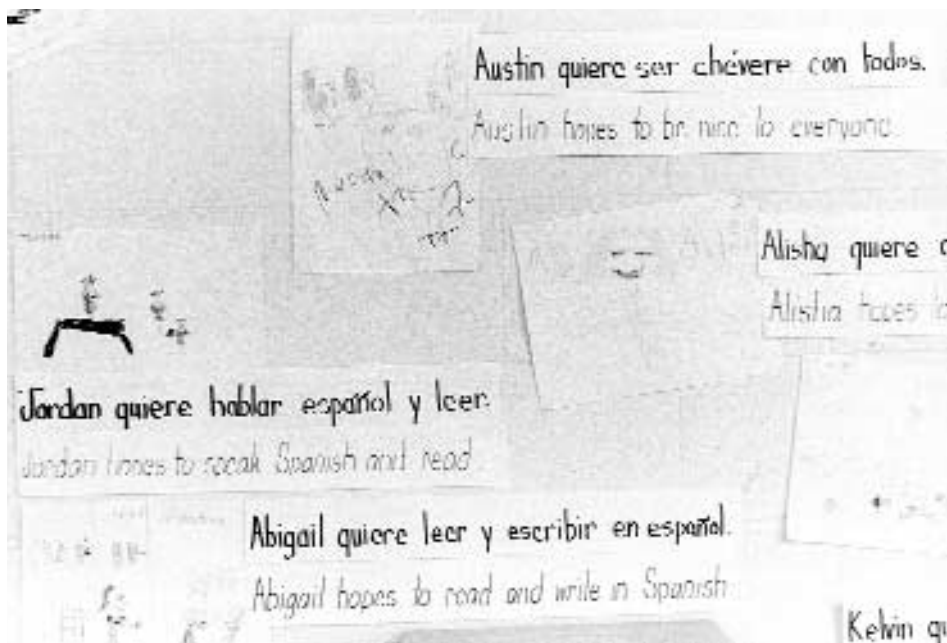 Austin quiere ser chévere con todos.
Austin hopes to be nice to everyone.
Alisha quiere
Alisha hopes to
Jordan quiere hablar español y leer.
Jordan hopes to speak Spanish and read.
Abigail quiere leer y escribir en español.
Abigail hopes to read and write in Spanish.
Kelvin